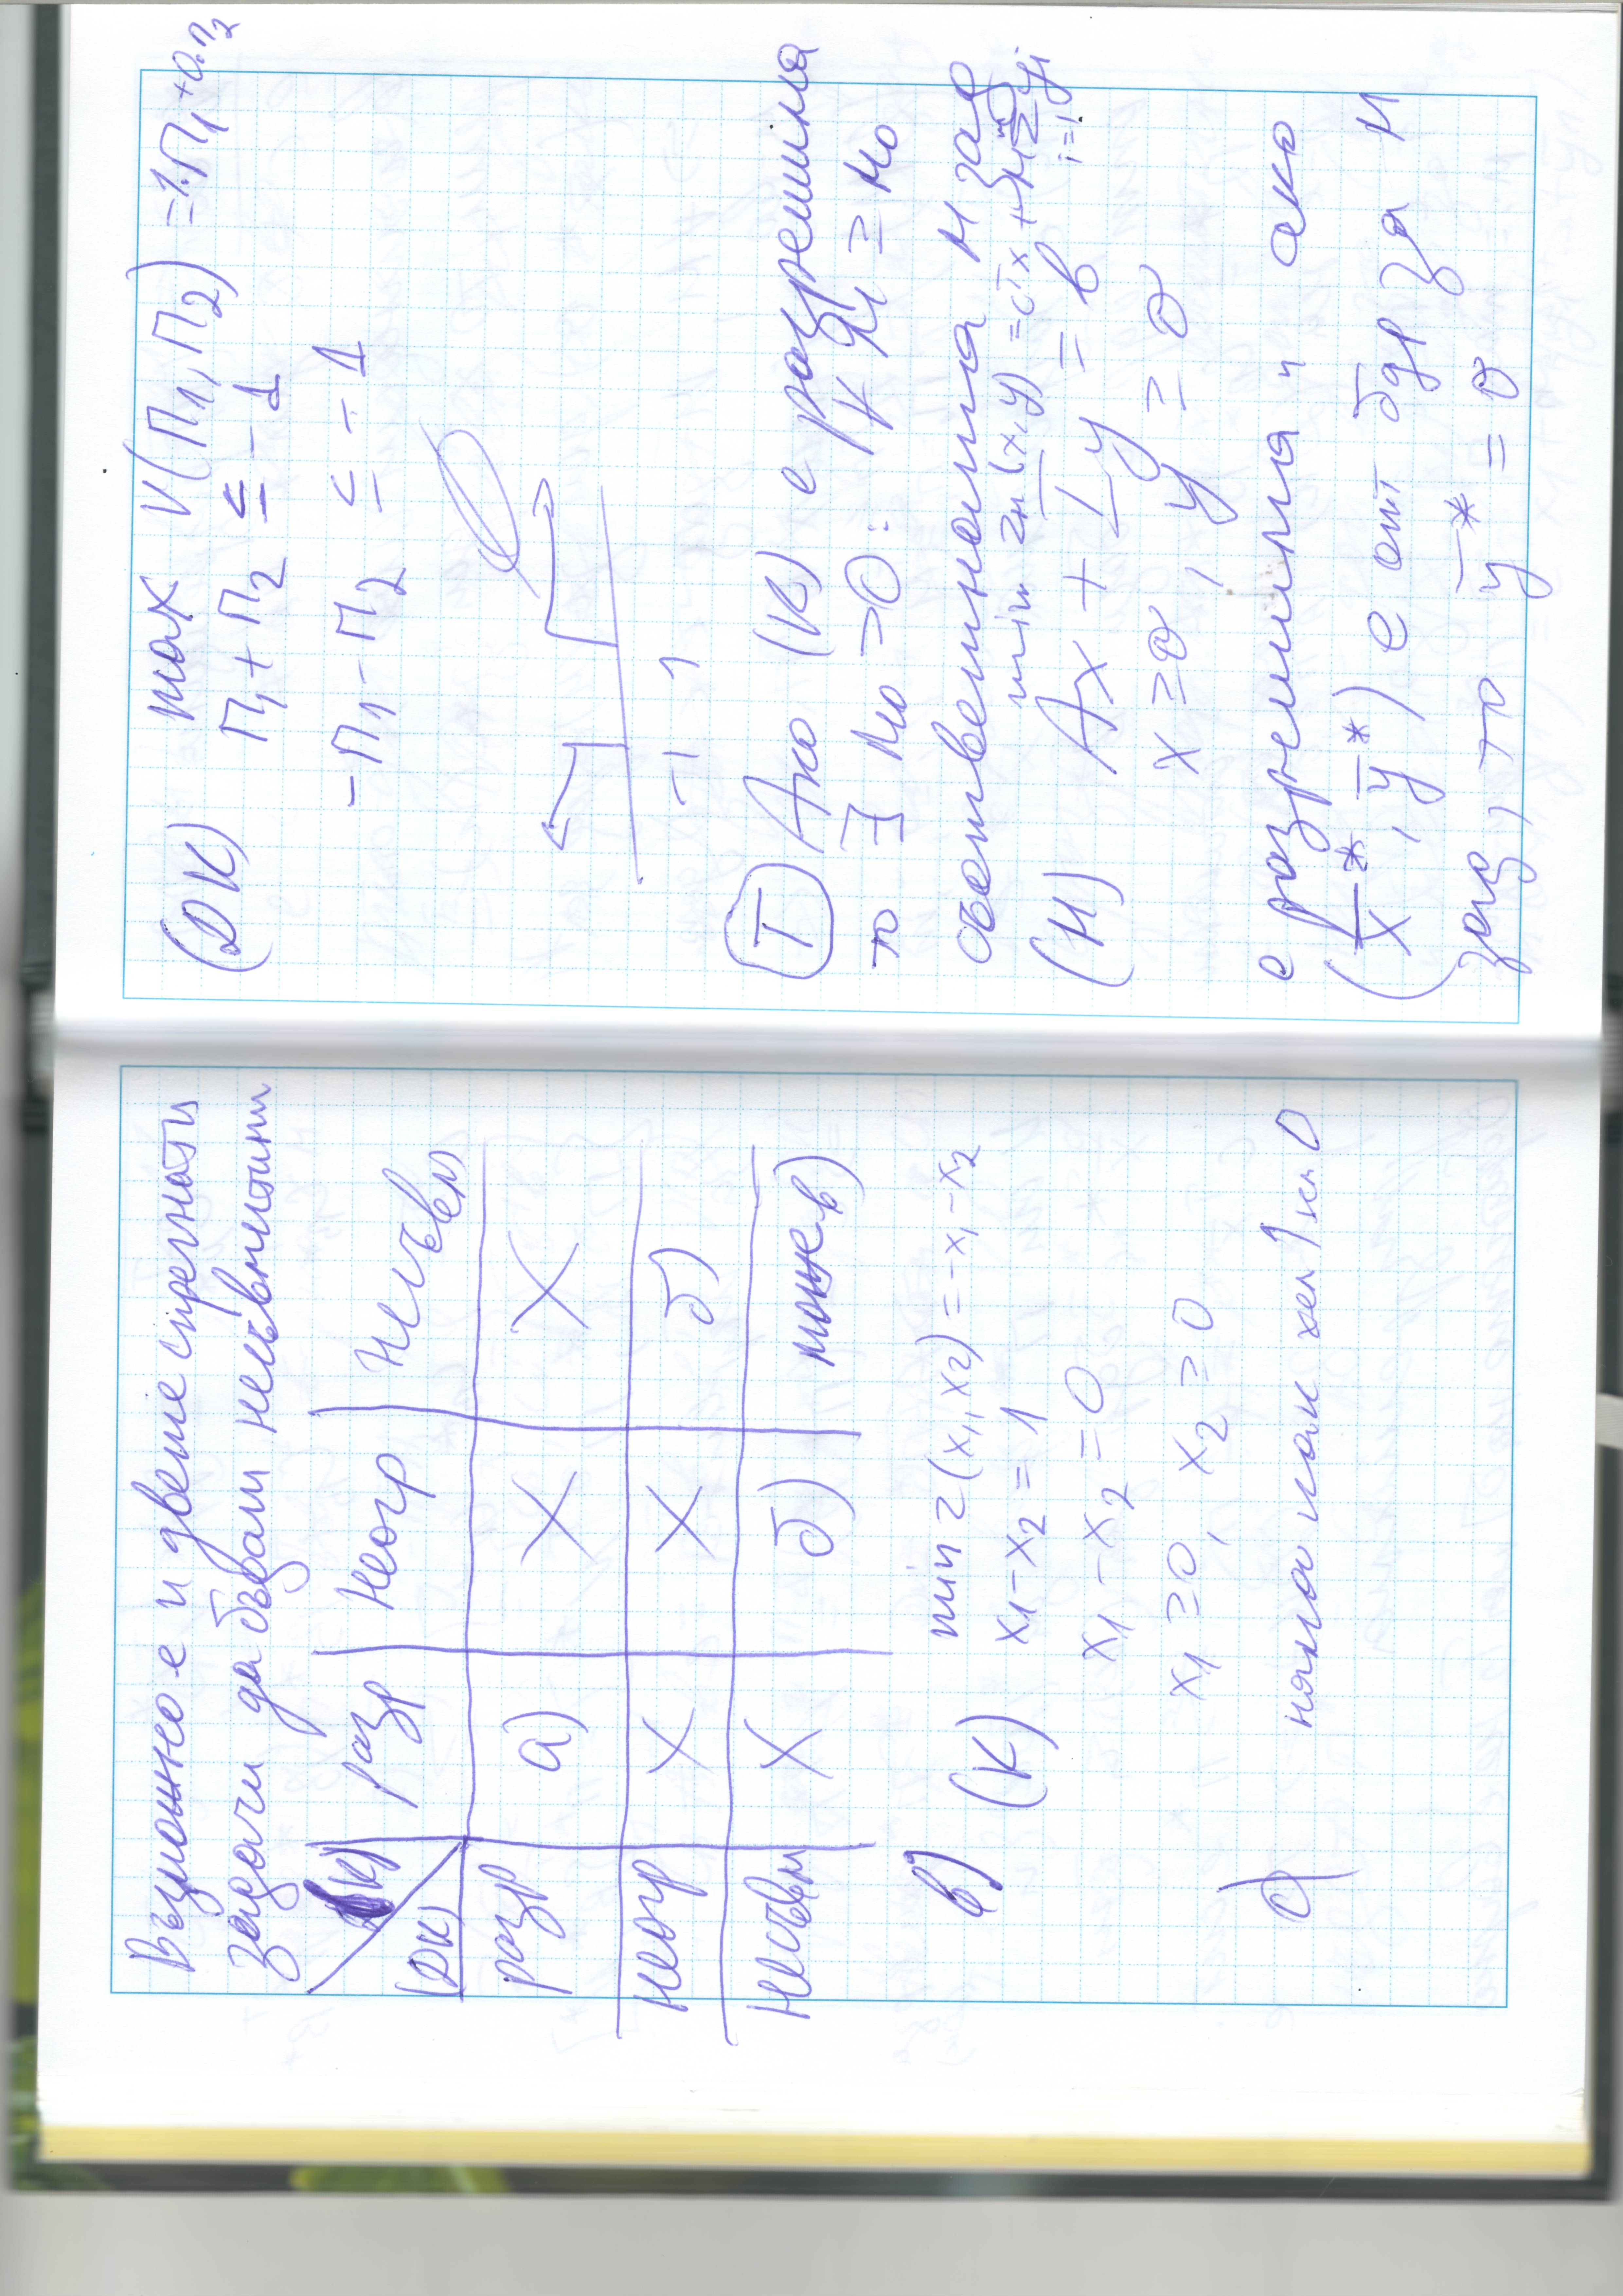 Възможно е и двете спрегнати
задачи да бъдат несъвместими
(К) разр Неогр Несъвм
(DK)
разр а) X X
неогр X X б)
Несъвм X б) може в)
в) (К) min z(x₁, x₂) = -x₁ - x₂
x₁ - x₂ = 1
x₁ - x₂ = 0
x₁ ≥ 0, x₂ ≥ 0
няма как 1 0
(DK) max V(π₁, π₂) = 1.π₁ + 0.π₂
π₁ + π₂ ≤ -1
-π₁ - π₂ ≤ -1
-1 1
Т Ако (К) е разрешима
то ∃ M₀ ≥ 0: ∀ M ≥ M₀
съответната М зад
min z_M(x, y) = cᵀx + M Σ yᵢ
i=1
(М) Ax + Iy = b
x ≥ 0, y ≥ 0
е разрешима и ако
(x̄*, ȳ*) е опт бдр за М
зад, то ȳ* = 0